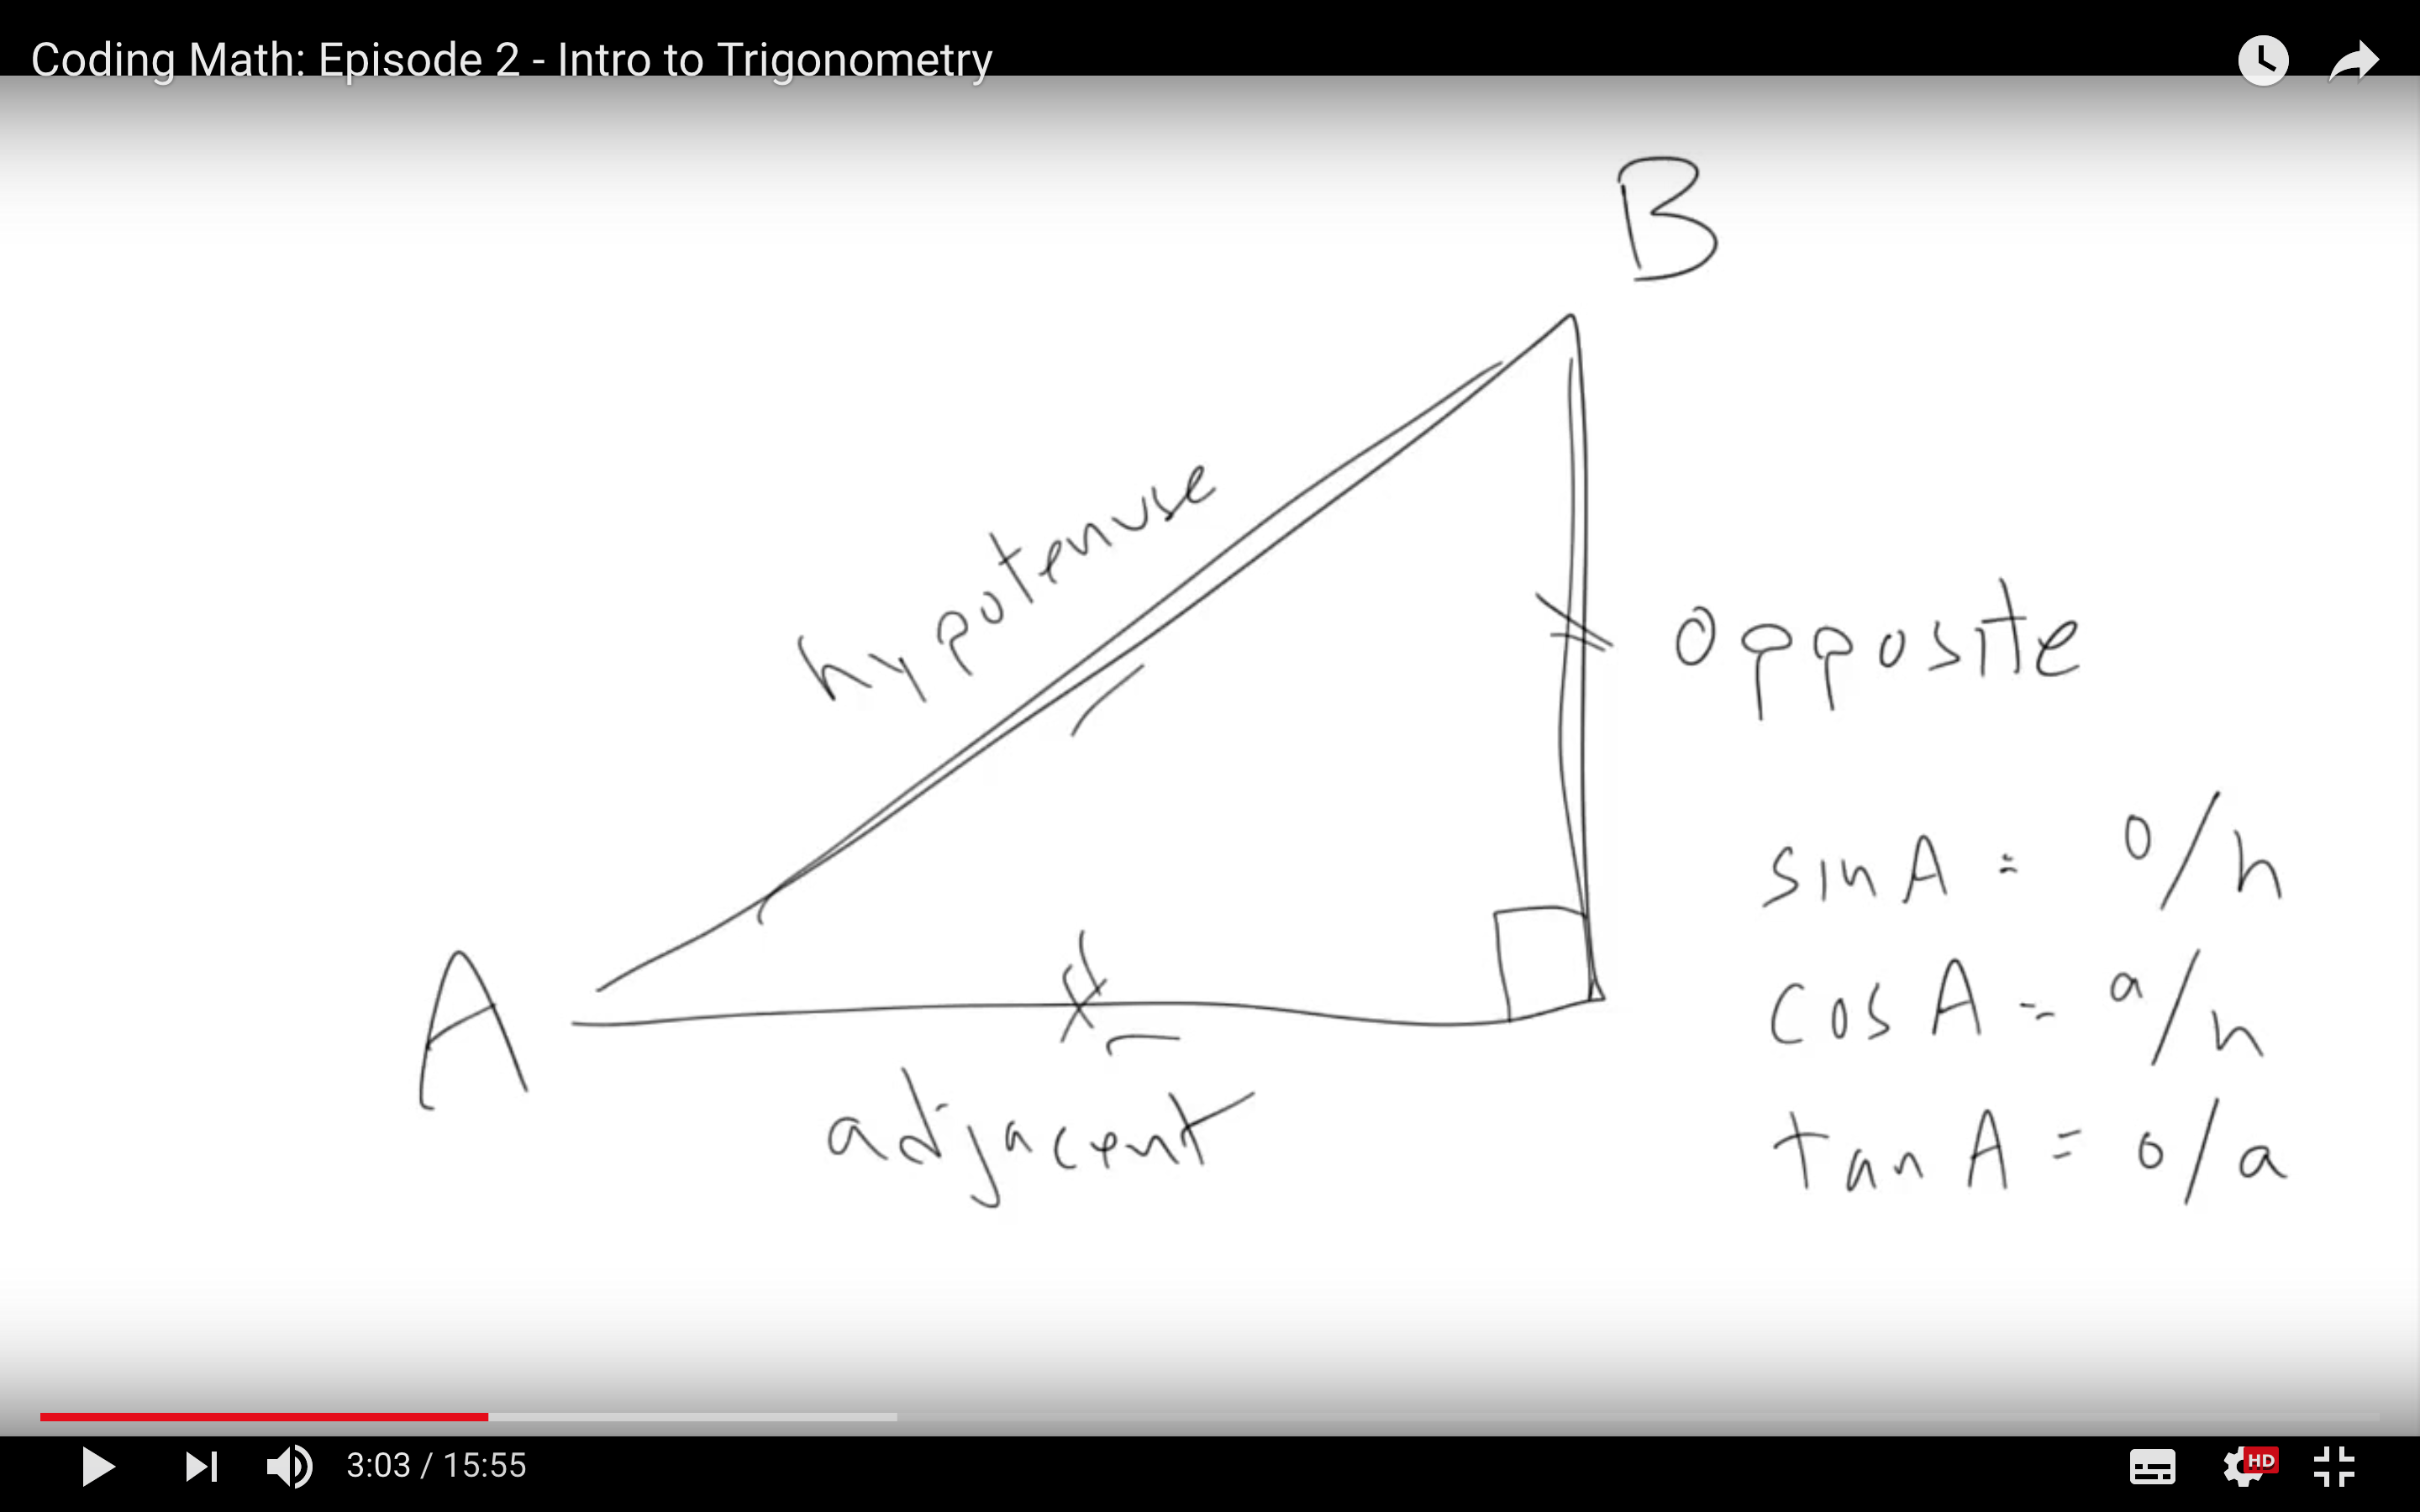 Coding Math: Episode 2 - Intro to Trigonometry
B
hypotenuse
opposite
sin A = o/h
A
cos A = a/h
adjacent
tan A = o/a
3:03 / 15:55
HD